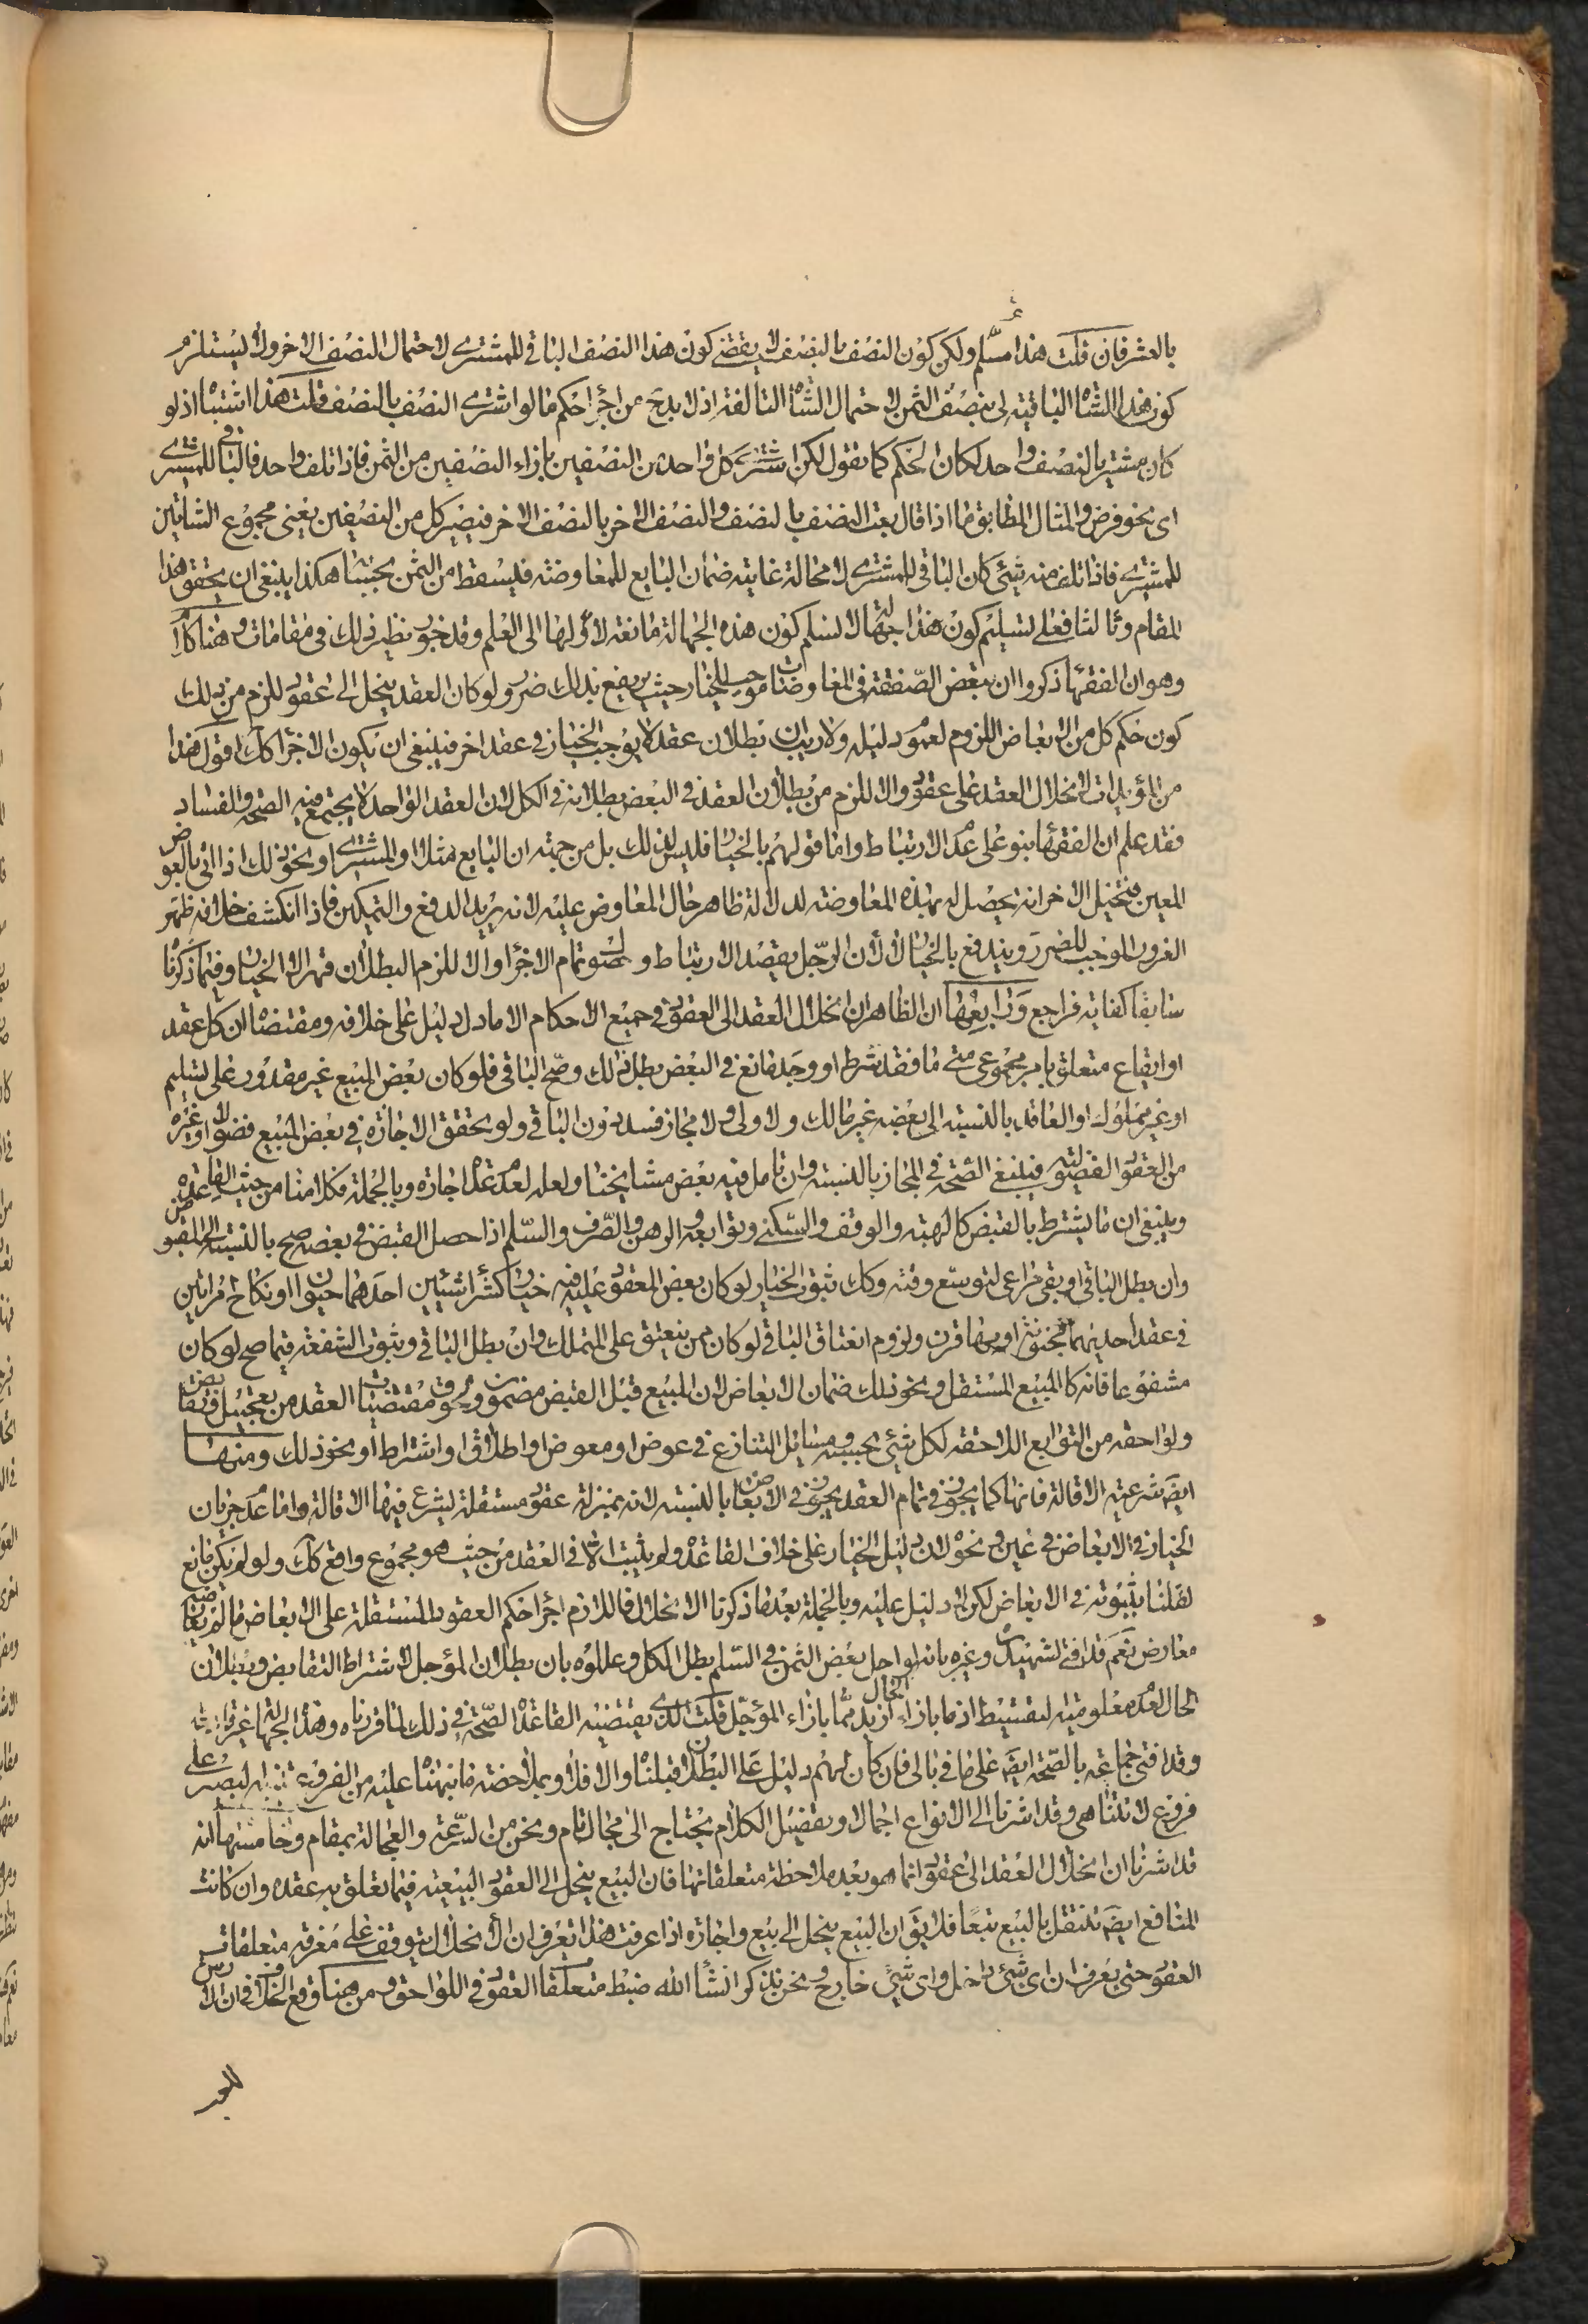 بالعشر فان قلت هذا مسلّم ولكن كون النصف بالنصف لا يقتضي كون هذا النصف الباقي للمشتري لاحتمال النصف الاخر ولا يستلزم
كون هذا الشاة الباقية لى بنصف الثمن لاحتمال الشاة التالفة اذ لا بدّ ح من اجراء حكم ما لو اشترى النصف بالنصف قلت هذا اشتباه اذ لو
كان مشتريا لنصف واحد لكان الحكم كما تقول لكن اشترى كل واحد من النصفين بازاء النصفين من الثمن فاذا تلف واحد فالباقي للمشتري
اى نحو فرض والمثال المطابق ما اذا قال بعت النصف بالنصف والنصف الاخر بالنصف الاخر فيصير كل من النصفين يعنى مجموع الشاتين
للمشتري فاذا تلف منه شئ كان الباقي للمشتري لا محالة غايته ضمان البايع للمعاوضة فيسقط من الثمن بحسابها هكذا ينبغى ان يحقق هذا
المقام وثالثا فعلى تسليم كون هذا جهالة لا نسلم كون هذه الجهالة مانعة لاولها الى العلم وقد جوز نظير ذلك في مقامات وهنا كلام
وهو ان الفقهاء ذكروا ان تبعض الصفقة في المعاوضات موجب للخيار حيث يرتفع بذلك ضرر ولو كان العقد ينحل الى عقود للزم من ذلك
كون حكم كل من الابعاض اللزوم لعموم دليله ولا ريب ان بطلان عقد لا يوجب الخيار في عقد اخر فينبغى ان يكون الاجزاء كك اقول هذا
من المؤيدات لانحلال العقد على عقود والا للزم من بطلان العقد في البعض بطلانه في الكل لان العقد الواحد لا يجتمع فيه الصحة والفساد
فقد علم ان الفقهاء بنوا على عدم الارتباط واما قولهم بالخيار فليس لذلك بل من جهة ان البايع مثلا او المشتري او نحو ذلك اذا اتى بالعوض
المعين فتخيل الاخر انه يحصل له بهذه المعاوضة لدلالة ظاهر حال المعاوض عليه لانه يريد الدفع والتمكين فاذا انكشف خلافه ظهر
الغرور الموجب للضرر ويندفع بالخيار لا لان الرجل يقصد الارتباط وحصول تمام الاجزاء والا للزم البطلان قهرا لا الخيار وفيما ذكرنا
سابقا كفاية فراجع ورابعها ان الظاهر انحلال العقد الى العقود في جميع الاحكام الا ما دل دليل على خلافه ومقتضاه ان كل عقد
او ايقاع متعلق بامر مجموعى متى ما فقد شرط او وجد مانع في البعض بطل ذلك وصح الباقي فلو كان بعض المبيع غير مقدور على تسليم
او غير مملوك او العاقد بالنسبة الى بعضه غير مالك ولا ولى ولا مجاز فسد دون الباقي ولو تحقق الاجازة في بعض المبيع فضولا او غيره
من العقود الفضولية فينبغى الصحة في المجاز بالنسبة وان تامل فيه بعض مشايخنا ولعله لعدم عد اجازة وبالجملة فكلامنا من حيث القاعدة
وينبغى ان ما يشترط بالقبض كالهبة والوقف والسكنى وتوابعه والرهن والصرف والسلم اذا حصل القبض في بعضه صح بالنسبة الى المقبوض
وان بطل الباقي او بقى مراعى لتوسع وقته وكك ثبوت الخيار لو كان بعض المعقود عليه فيه خيار كشراء شيئين احدهما حيوان او نكاح امراتين
في عقد احديهما مجنونة او بها قرن ولزوم انعتاق الباقي لو كان ممن ينعتق على المتملك وان بطل الباقي وثبوت الشفعة فيما صح لو كان
مشفوعا فانه كالمبيع المستقل ونحو ذلك ضمان الابعاض لان المبيع قبل القبض مضمون ولحوق مقتضيات العقد من تعجيل وتقابض
ولواحقه من التوابع اللاحقة لكل شئ بحسبه ومسائل التنازع في عوض او معوض او اطلاق او اشتراط او نحو ذلك ومنها
ايضا شرعية الاقالة فانها كما يجوز في تمام العقد يجوز في الابعاض بالنسبة لانه بمنزلة عقود مستقلة يشرع فيها الاقالة واما عدم جريان
الخيار في الابعاض في غبن ونحوه لان دليل الخيار على خلاف القاعدة ولم يثبت الا في العقد من حيث هو مجموع واقع كك ولو لم يكن مانع
لقلنا بثبوته في الابعاض لكن لا دليل عليه وبالجملة بعد ما ذكرنا الانحلال فاللازم اجراء حكم العقود المستقلة على الابعاض ما لم يعارضه
معارض نعم قد افتى الشهيدان وغيره بانه لو اجل بعض الثمن في السلم بطل الكل وعللوه بان بطلان المؤجل لاشتراط التقابض وبطلان
الحال لعدم معلومية التقسيط اذ ما بازاء الحال ازيد مما بازاء المؤجل قلت الذى يقتضيه القاعدة الصحة في ذلك لما قررناه وهذه الجهالة غير
وقد افتى جماعة بالصحة ايضا على ما في بالى فان كان لهم دليل على البطلان قبلناه والا فلا وبملاحضة ما نبهنا عليه من الفروع تبصر على
فروع لا تتناهى وقد اشرنا الى الانواع اجمالا وتفصيل الكلام يحتاج الى مجال تام ونحن من السرعة والعجالة بمقام وخامستها انه
قد اشرنا ان انحلال العقد الى عقود انما هو بعد ملاحظة متعلقاتها فان البيع ينحل الى العقود البيعية فيما تعلق به عقده وان كانت
المنافع ايضا تنتقل بالبيع تبعا فلا يق ان البيع ينحل الى بيع واجازة اذا عرفت هذا تعرف ان الانحلال يتوقف على معرفة متعلقات
العقود حتى يعرف ان اى شئ داخل واى شئ خارج ونحن نذكر انشأ الله ضبط متعلقات العقود في اللواحق ومن هنا وقع الخلاف في ان